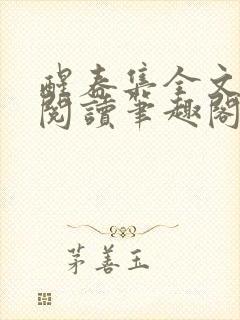 醒春集全文
閱讀筆趣閣
茅善玉